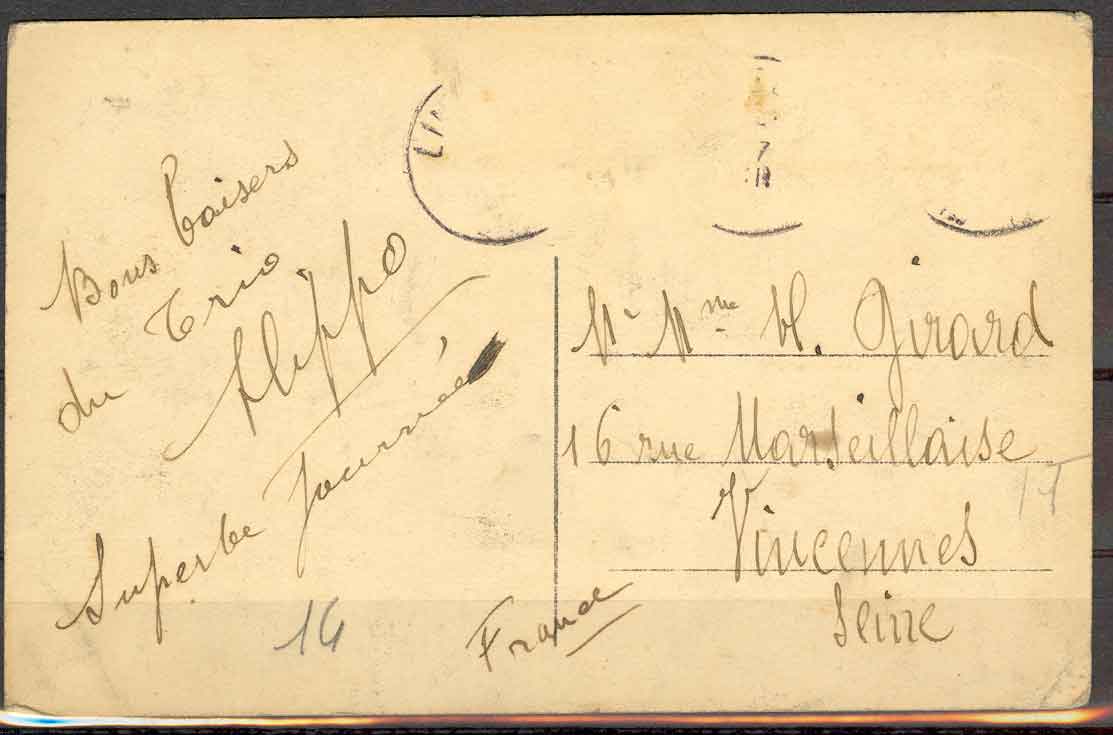 Bons baisers
du Trio
Alippo
Superbe Journée
Mr Mme H. Girard
16 rue Marseillaise
Vincennes
Seine
France
14